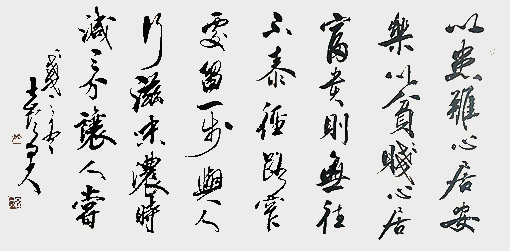 以患難心居安
樂以貧賤心居
富貴則無往
不泰徑路窄
處留一步與人
行滋味濃時
減三分讓人嘗